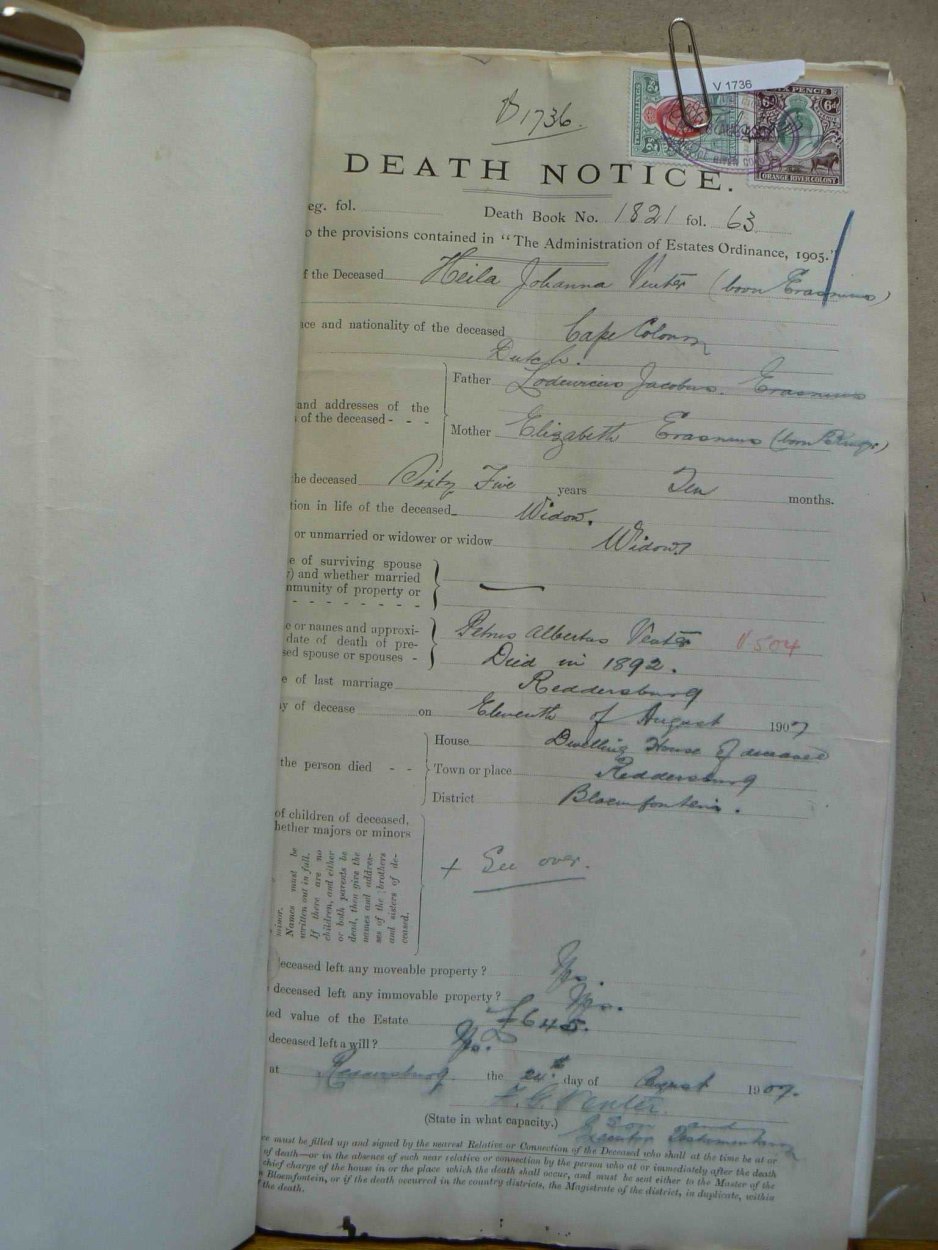 V 1736
V 1736.
TWO SHILLINGS
SIX PENCE
6d 6d
ORANGE RIVER COLONY
DEATH NOTICE.
eg. fol. Death Book No. 1821 fol. 63
o the provisions contained in "The Administration of Estates Ordinance, 1905."
f the Deceased Heila Johanna Venter (born Erasmus)
ace and nationality of the deceased Cape Colony
Dutch.
Father Lodewicus Jacobus Erasmus
and addresses of the
s of the deceased - - -
Mother Elizabeth Erasmus (born
he deceased Sixty Five years Ten months.
tion in life of the deceased Widow.
or unmarried or widower or widow Widow
e of surviving spouse
) and whether married
mmunity of property or
e or names and approxi-
date of death of pre-
sed spouse or spouses -
Petrus Albertus Venter V 504
Died in 1892.
e of last marriage Reddersburg
ay of decease on Eleventh of August 1907
House Dwelling House of deceased
the person died - - Town or place Reddersburg
District Bloemfontein.
of children of deceased,
hether majors or minors
minor.
Names must be
written out in full.
If there are no
children, and either
or both parents be
dead, then give the
names and addres-
ses of the brothers
and sisters of de-
ceased.
+ See over.
deceased left any moveable property?
deceased left any immovable property?
ted value of the Estate £645.
deceased left a will?
at Reddersburg the 24th day of August 1907.
Venter.
(State in what capacity.) Son and
Executor Testamentary
ce must be filled up and signed by the nearest Relative or Connection of the Deceased who shall at the time be at or
of death—or in the absence of such near relative or connection by the person who at or immediately after the death
chief charge of the house in or the place which the death shall occur, and must be sent either to the Master of the
Bloemfontein, or if the death occurred in the country districts, the Magistrate of the district, in duplicate, within
the death.